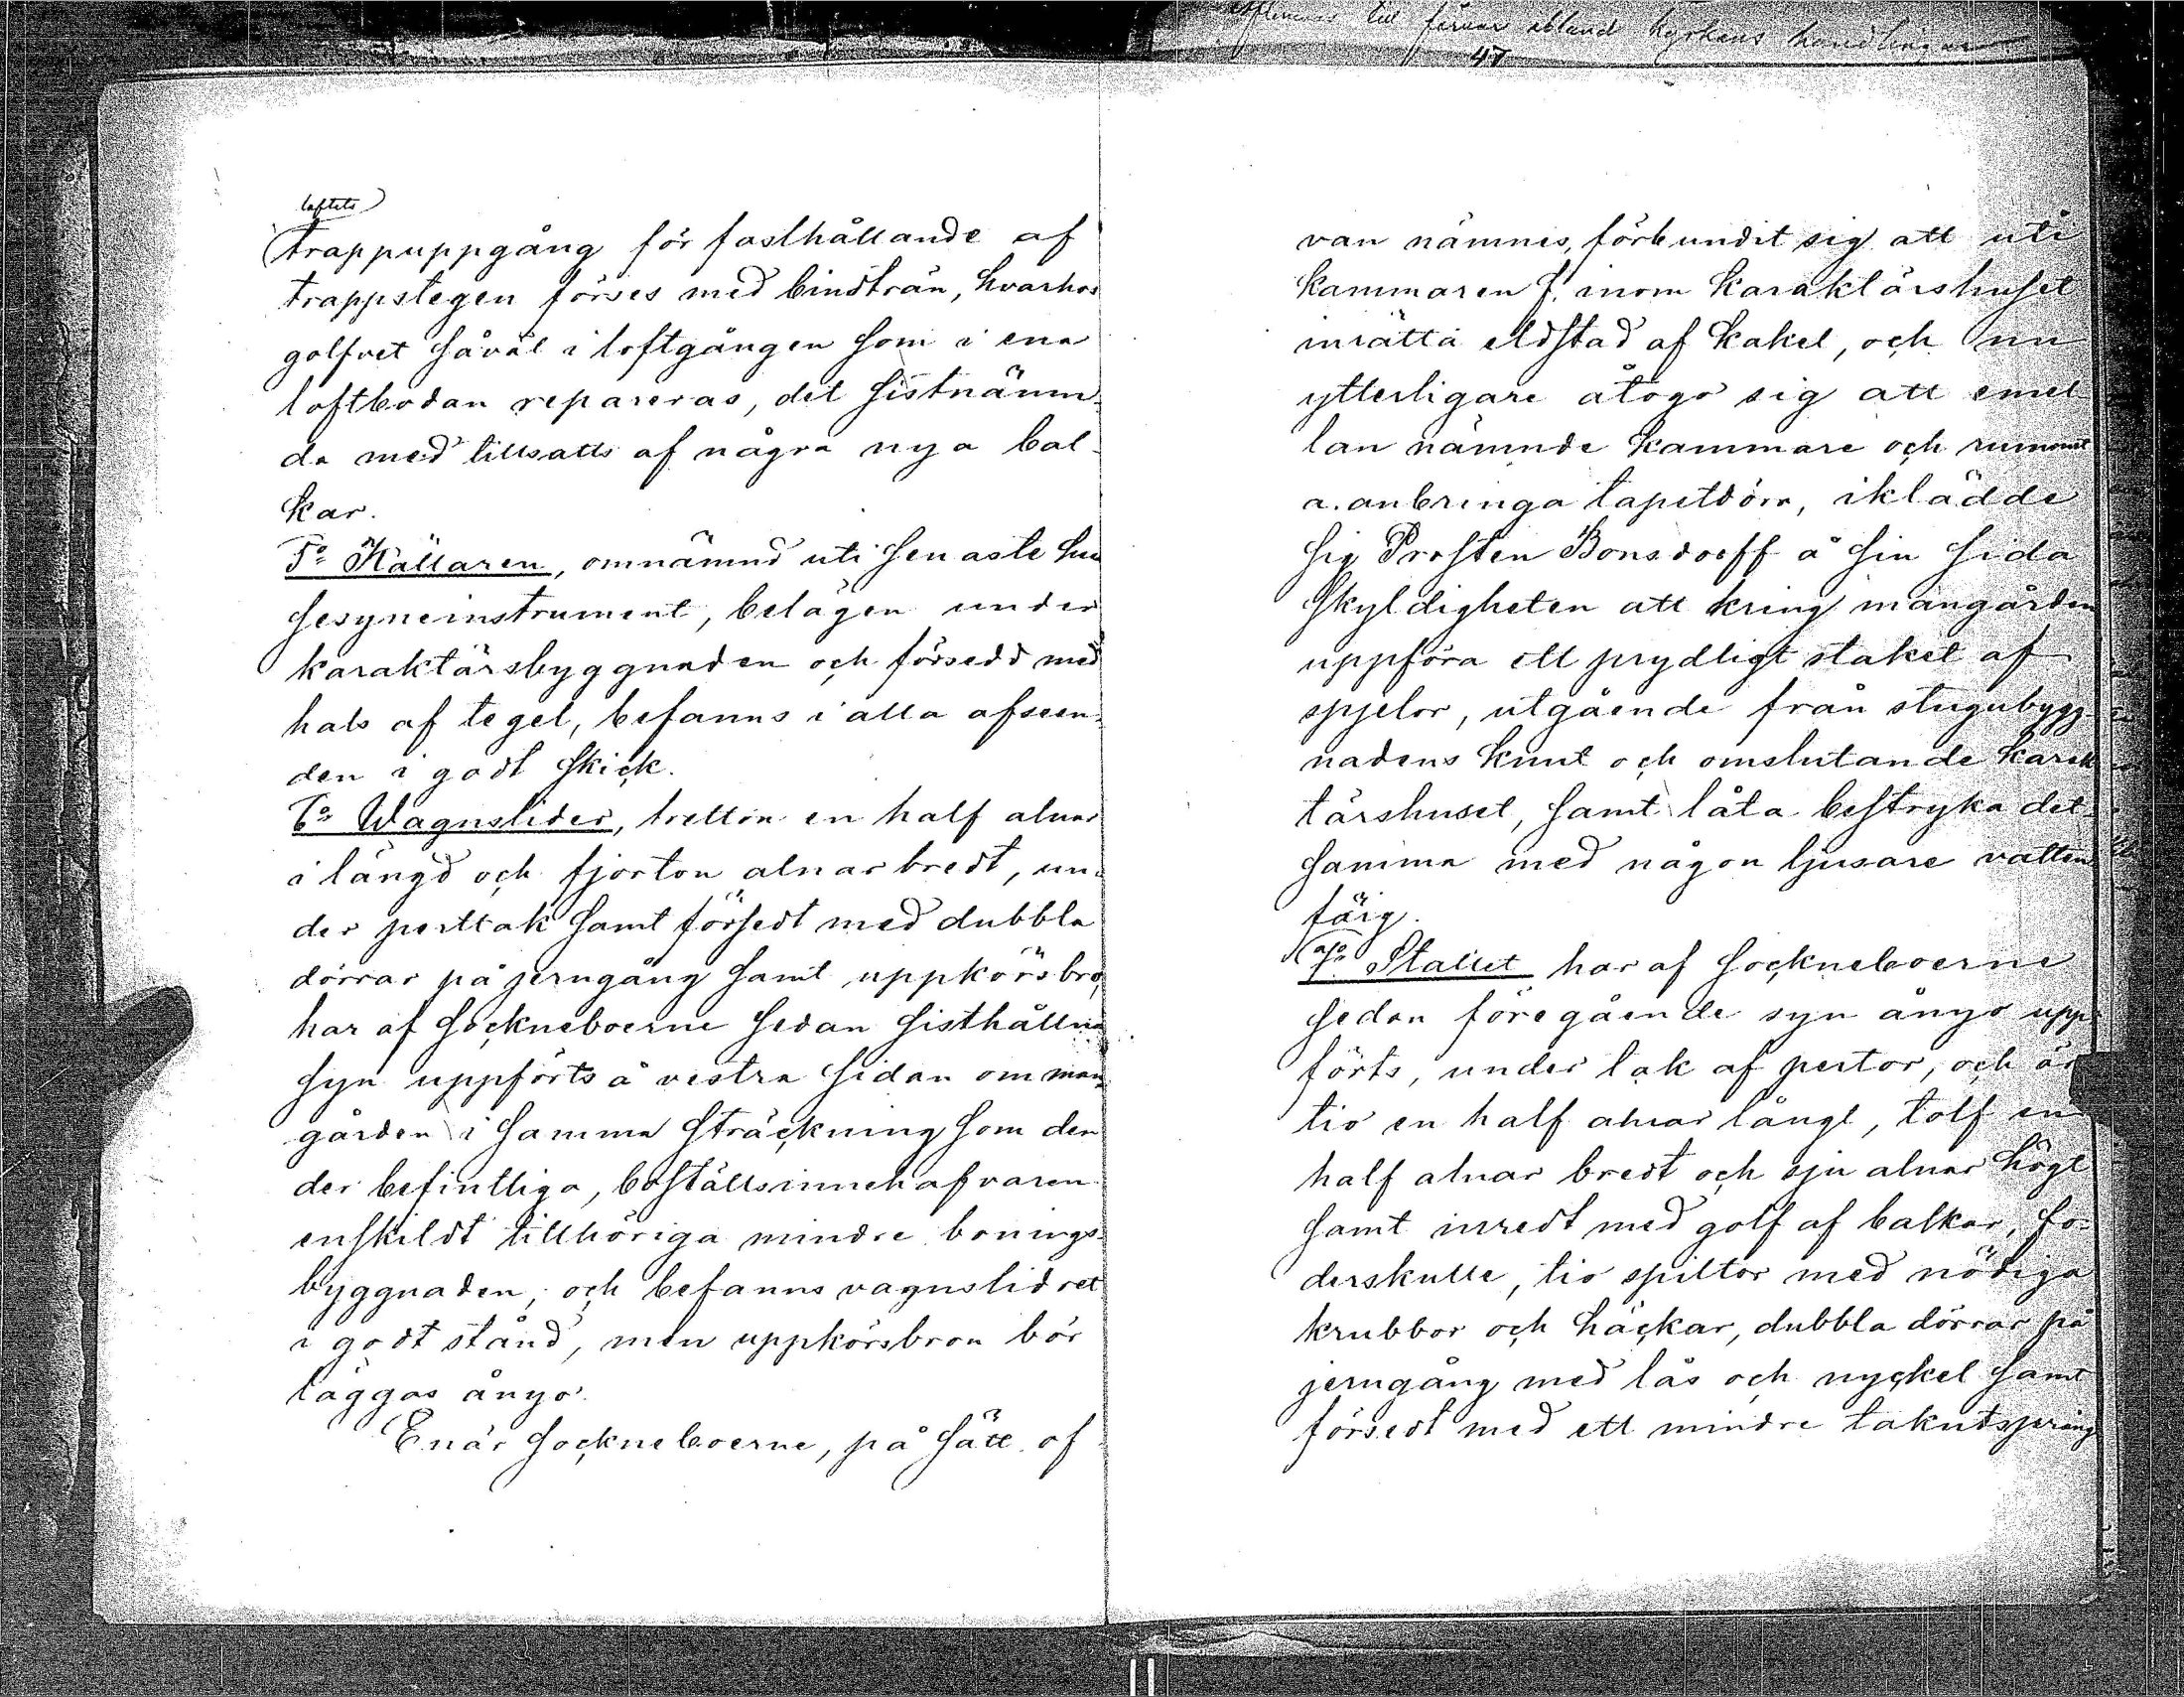 till förvar ibland kyrkans handlingar
47
loftets
trappuppgång för fasthållande af
trappstegen förses med bindträn, hvarhos
golfvet såväl i loftgången som i ena
loftbodan repareras, det sistnämn-
da med tillsatts af några nya bal-
kar.
5:o Källaren, omnämnd uti senaste hu
sesyneinstrument, belägen under
karaktärsbyggnaden och försedd med
hals af tegel, befanns i alla afseen-
den i godt skick.
6:o Wagnslider, tretton en half alnar
i längd och fjorton alnar bredt, un-
der perttak samt försedt med dubbla
dörrar på jerngång samt uppkörsbro,
har af sockneboerne sedan sisthållna
syn uppförts å vestra sidan om man
gården i samma sträckning som den
der befintliga, boställsinnehafvaren
enskildt tillhöriga mindre bonings-
byggnaden, och befanns vagnslidret
i godt stånd, men uppkörsbron bör
läggas ånyo.
Enär sockneboerne, på sätt of-
van nämnes, förbundit sig att uti
kammaren f. inom karaktärshuset
inrätta eldstad af kakel, och nu
ytterligare åtogo sig att emel-
lan nämnde kammare och rummet
a. anbringa tapetdörr, iklädde
sig Prosten Bonsdorff å sin sida
skyldigheten att kring mangården
uppföra ett prydligt staket af
spjelor, utgående från stugubygg-
nadens knut och omslutande karak
tärshuset, samt låta bestryka det-
samma med någon ljusare vatten
färg.
7:o Stallet har af sockneboerne
sedan föregående syn ånyo upp-
förts, under tak af pertor, och är
tio en half alnar långt, tolf en
half alnar bredt och sju alnar högt
samt inredt med golf af balkar, fo-
derskulle, tio spiltor med nödiga
krubbor och häckar, dubbla dörrar på
jerngång med lås och nyckel samt
försedt med ett mindre takutsprång